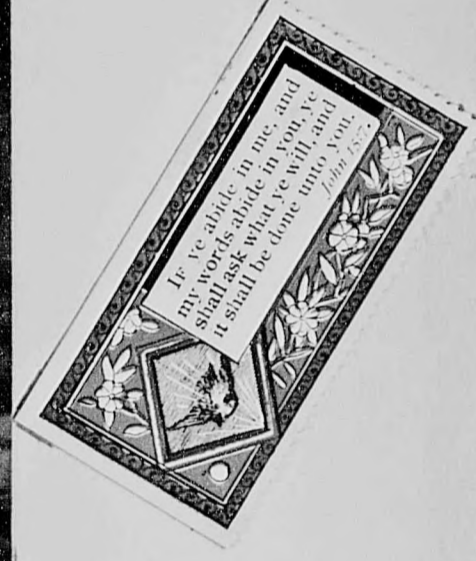 IF ye abide in me, and
my words abide in you, ye
shall ask what ye will, and
it shall be done unto you.
John 15:7.